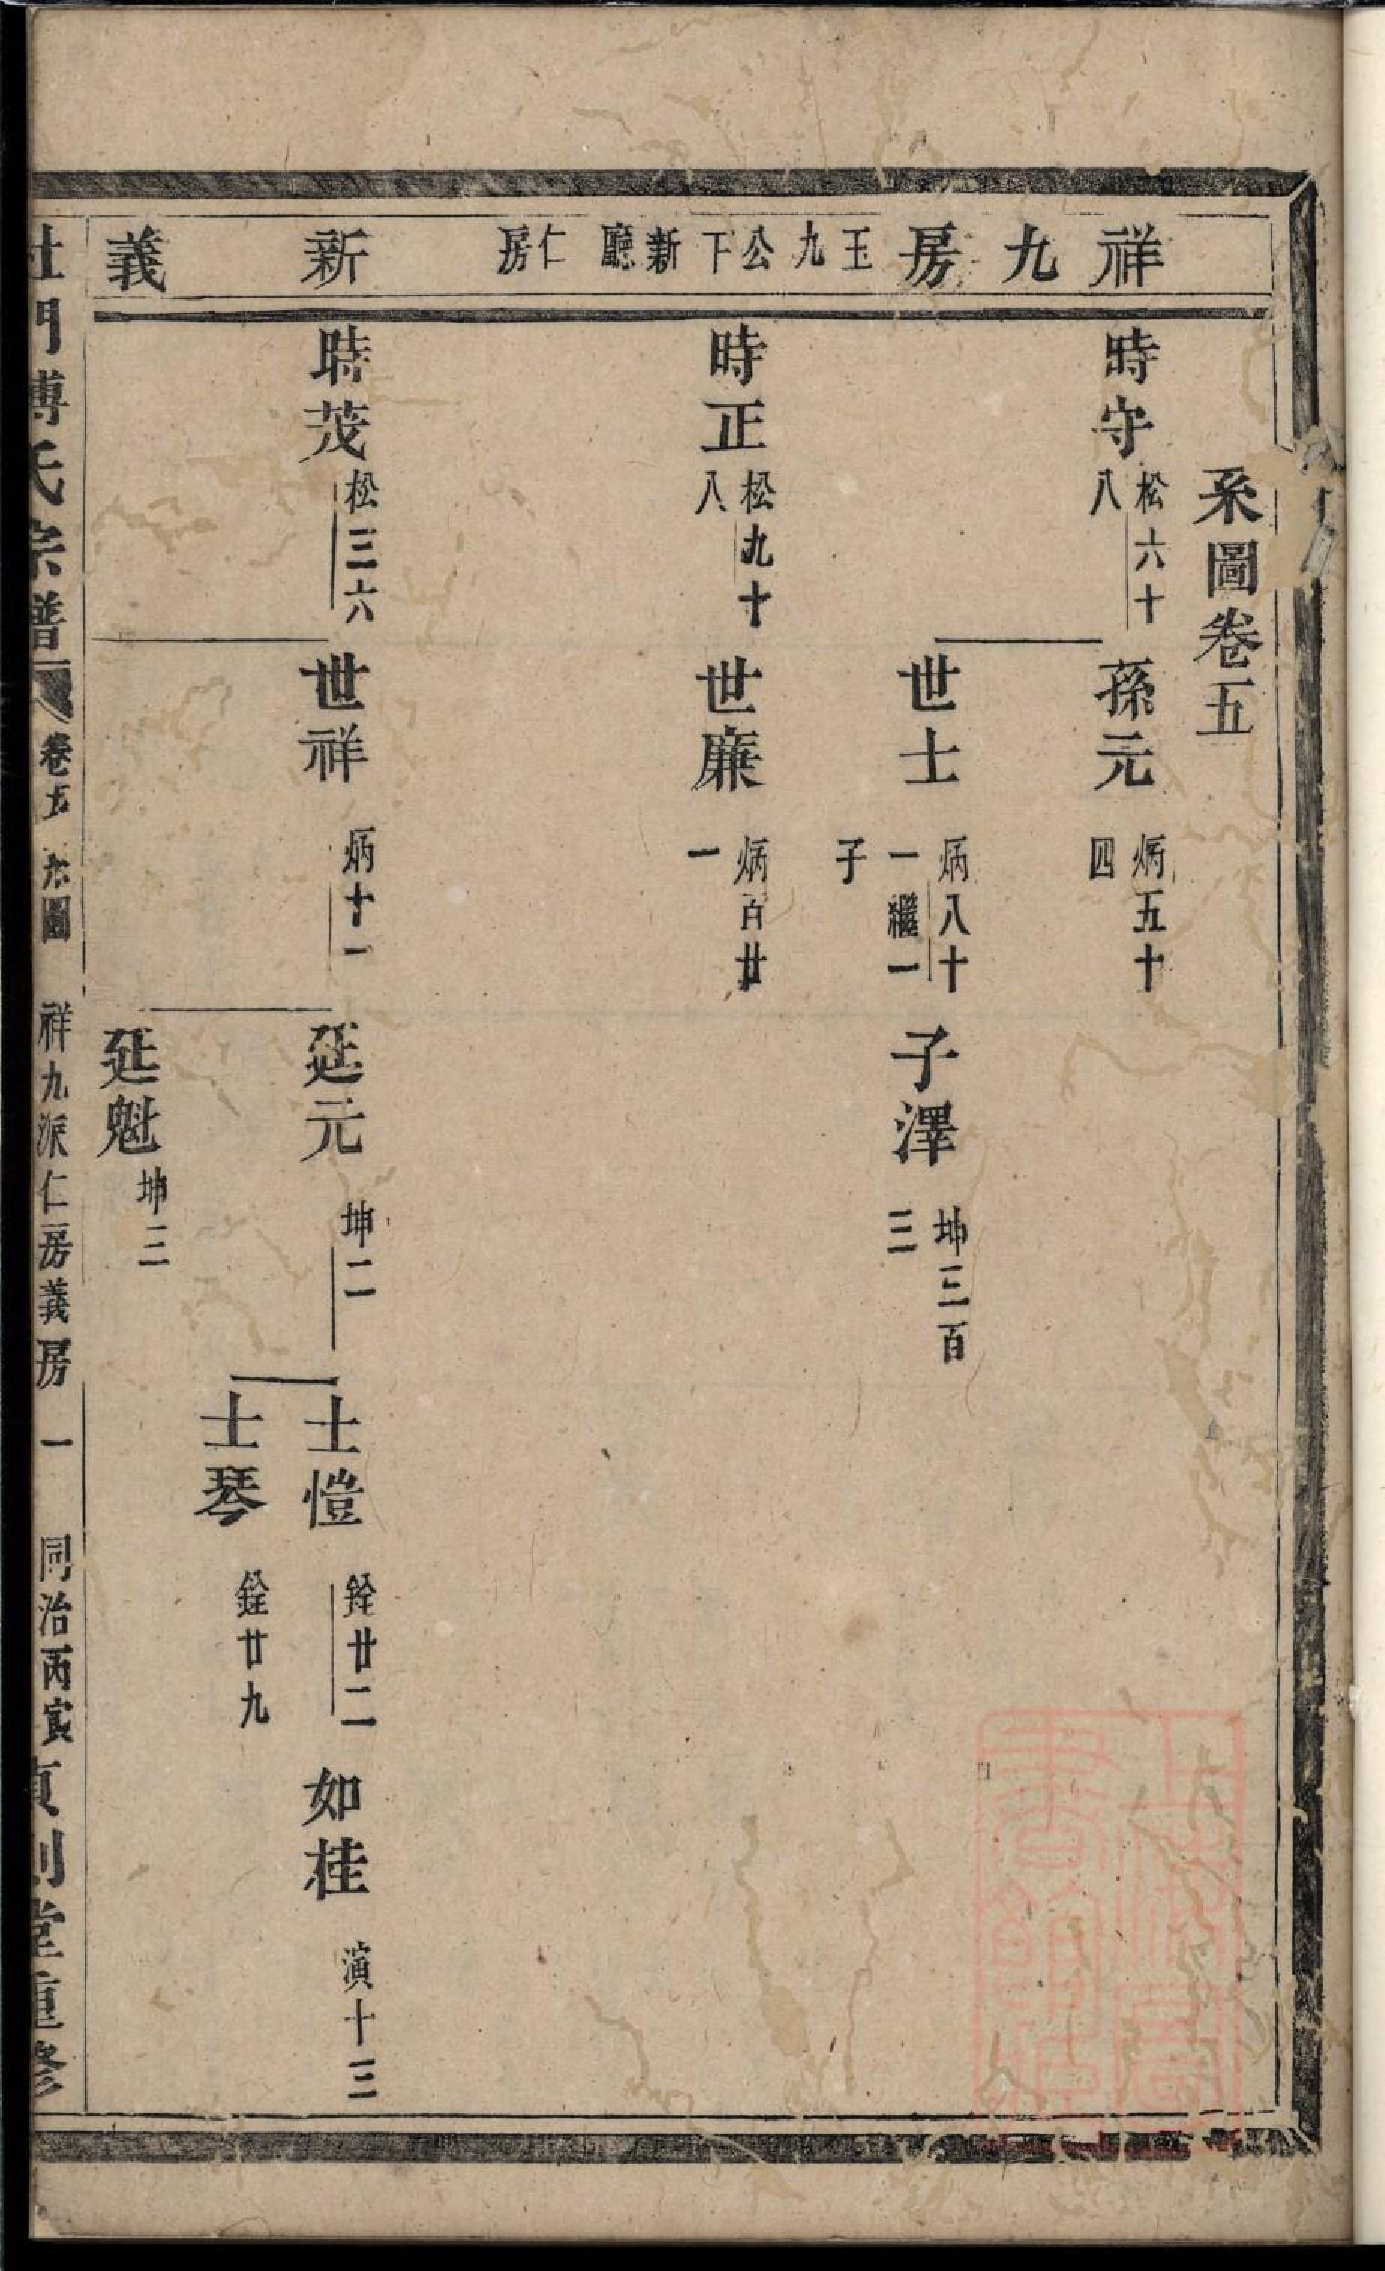 系圖卷五
祥九房 玉九公下新廳仁房 新義
時守 松六十八
孫元 炳五十四
世士 炳八十一繼一子
子澤 坤三百三
時正 松九十八
世廉 炳百廿一
時茂 松三六
世祥 炳十一
延元 坤二
士愷 銓廿二
如桂 演十三
士琴 銓廿九
延魁 坤三
氏宗譜 卷五 系圖 祥九派仁房義房 一 同治丙寅 堂重修
上海圖書館藏